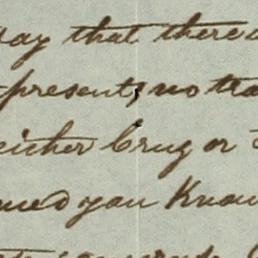 say that there
present, no tra
either Cruz or
med you Know